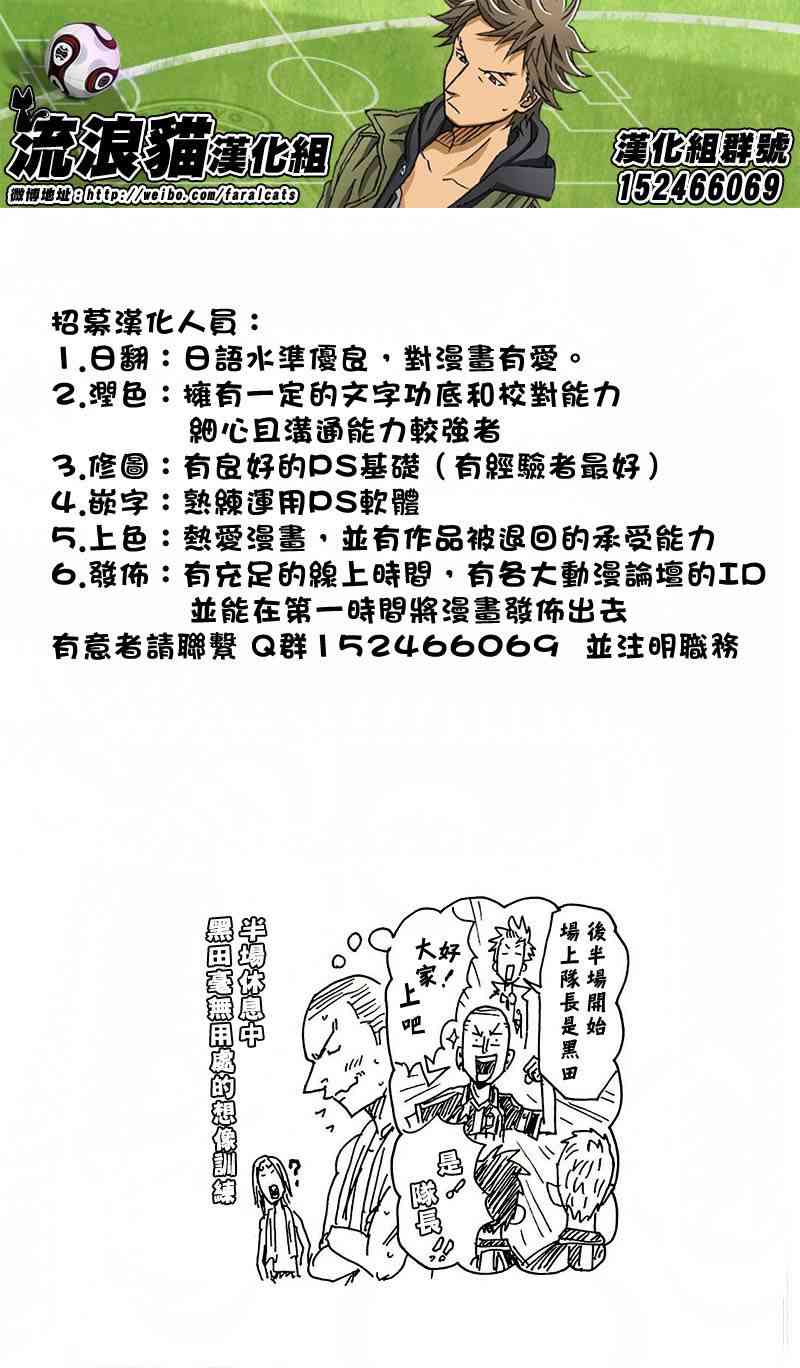 流浪貓漢化組
微博地址:http://weibo.com/faralcats
漢化組群號
152466069
招募漢化人員：
1.日翻：日語水準優良，對漫畫有愛。
2.潤色：擁有一定的文字功底和校對能力
細心且溝通能力較強者
3.修圖：有良好的PS基礎（有經驗者最好）
4.嵌字：熟練運用PS軟體
5.上色：熱愛漫畫，並有作品被退回的承受能力
6.發佈：有充足的線上時間，有各大動漫論壇的ID
並能在第一時間將漫畫發佈出去
有意者請聯繫 Q群152466069 並注明職務
後半場開始
場上隊長是黑田
好！
大家
上吧
是
隊長！！
半場休息中
黑田毫無用處的想像訓練
?